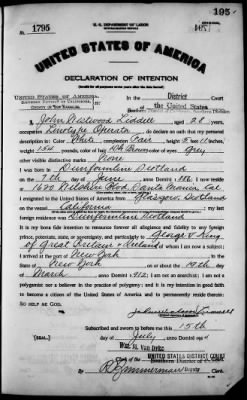 195
U. S. DEPARTMENT OF LABOR
No. 1795
UNITED STATES OF AMERICA
DECLARATION OF INTENTION
UNITED STATES OF AMERICA
SOUTHERN DISTRICT OF CALIFORNIA
District
the United States
I, John Westwood Liddell, aged 28 years,
occupation Linotype Operator, do declare on oath that my personal
description is: Color White, complexion Fair, height 5 feet 11 inches,
weight 154 pounds, color of hair Brown, color of eyes Grey
other visible distinctive marks None
I was born in Dunfermline Scotland
on the 7th day of June, anno Domini 1
1620 Santa Monica Cal
I emigrated to the United States of America from Glasgow, Scotland
California
foreign residence was Dunfermline Scotland
It is my bona fide intention to renounce forever all allegiance and fidelity to any foreign
prince, potentate, state, or sovereignty, and particularly to George V King
of Great Britain & Ireland, of whom I am now a subject;
arrived at the port of New York, in the
State of New York, on or about the 19th day
of March, anno Domini 1912; I am not an anarchist; I am not a
polygamist nor a believer in the practice of polygamy; and it is my intention in good faith
to become a citizen of the United States of America and to permanently reside therein:
SO HELP ME GOD.
Subscribed and sworn to before me this 15th
[SEAL.] day of July, anno Domini 191
Wm. M. Van Dyke
Clerk of the UNITED STATES DISTRICT COURT
Southern District of
By R S Zimmerman Deputy Clerk